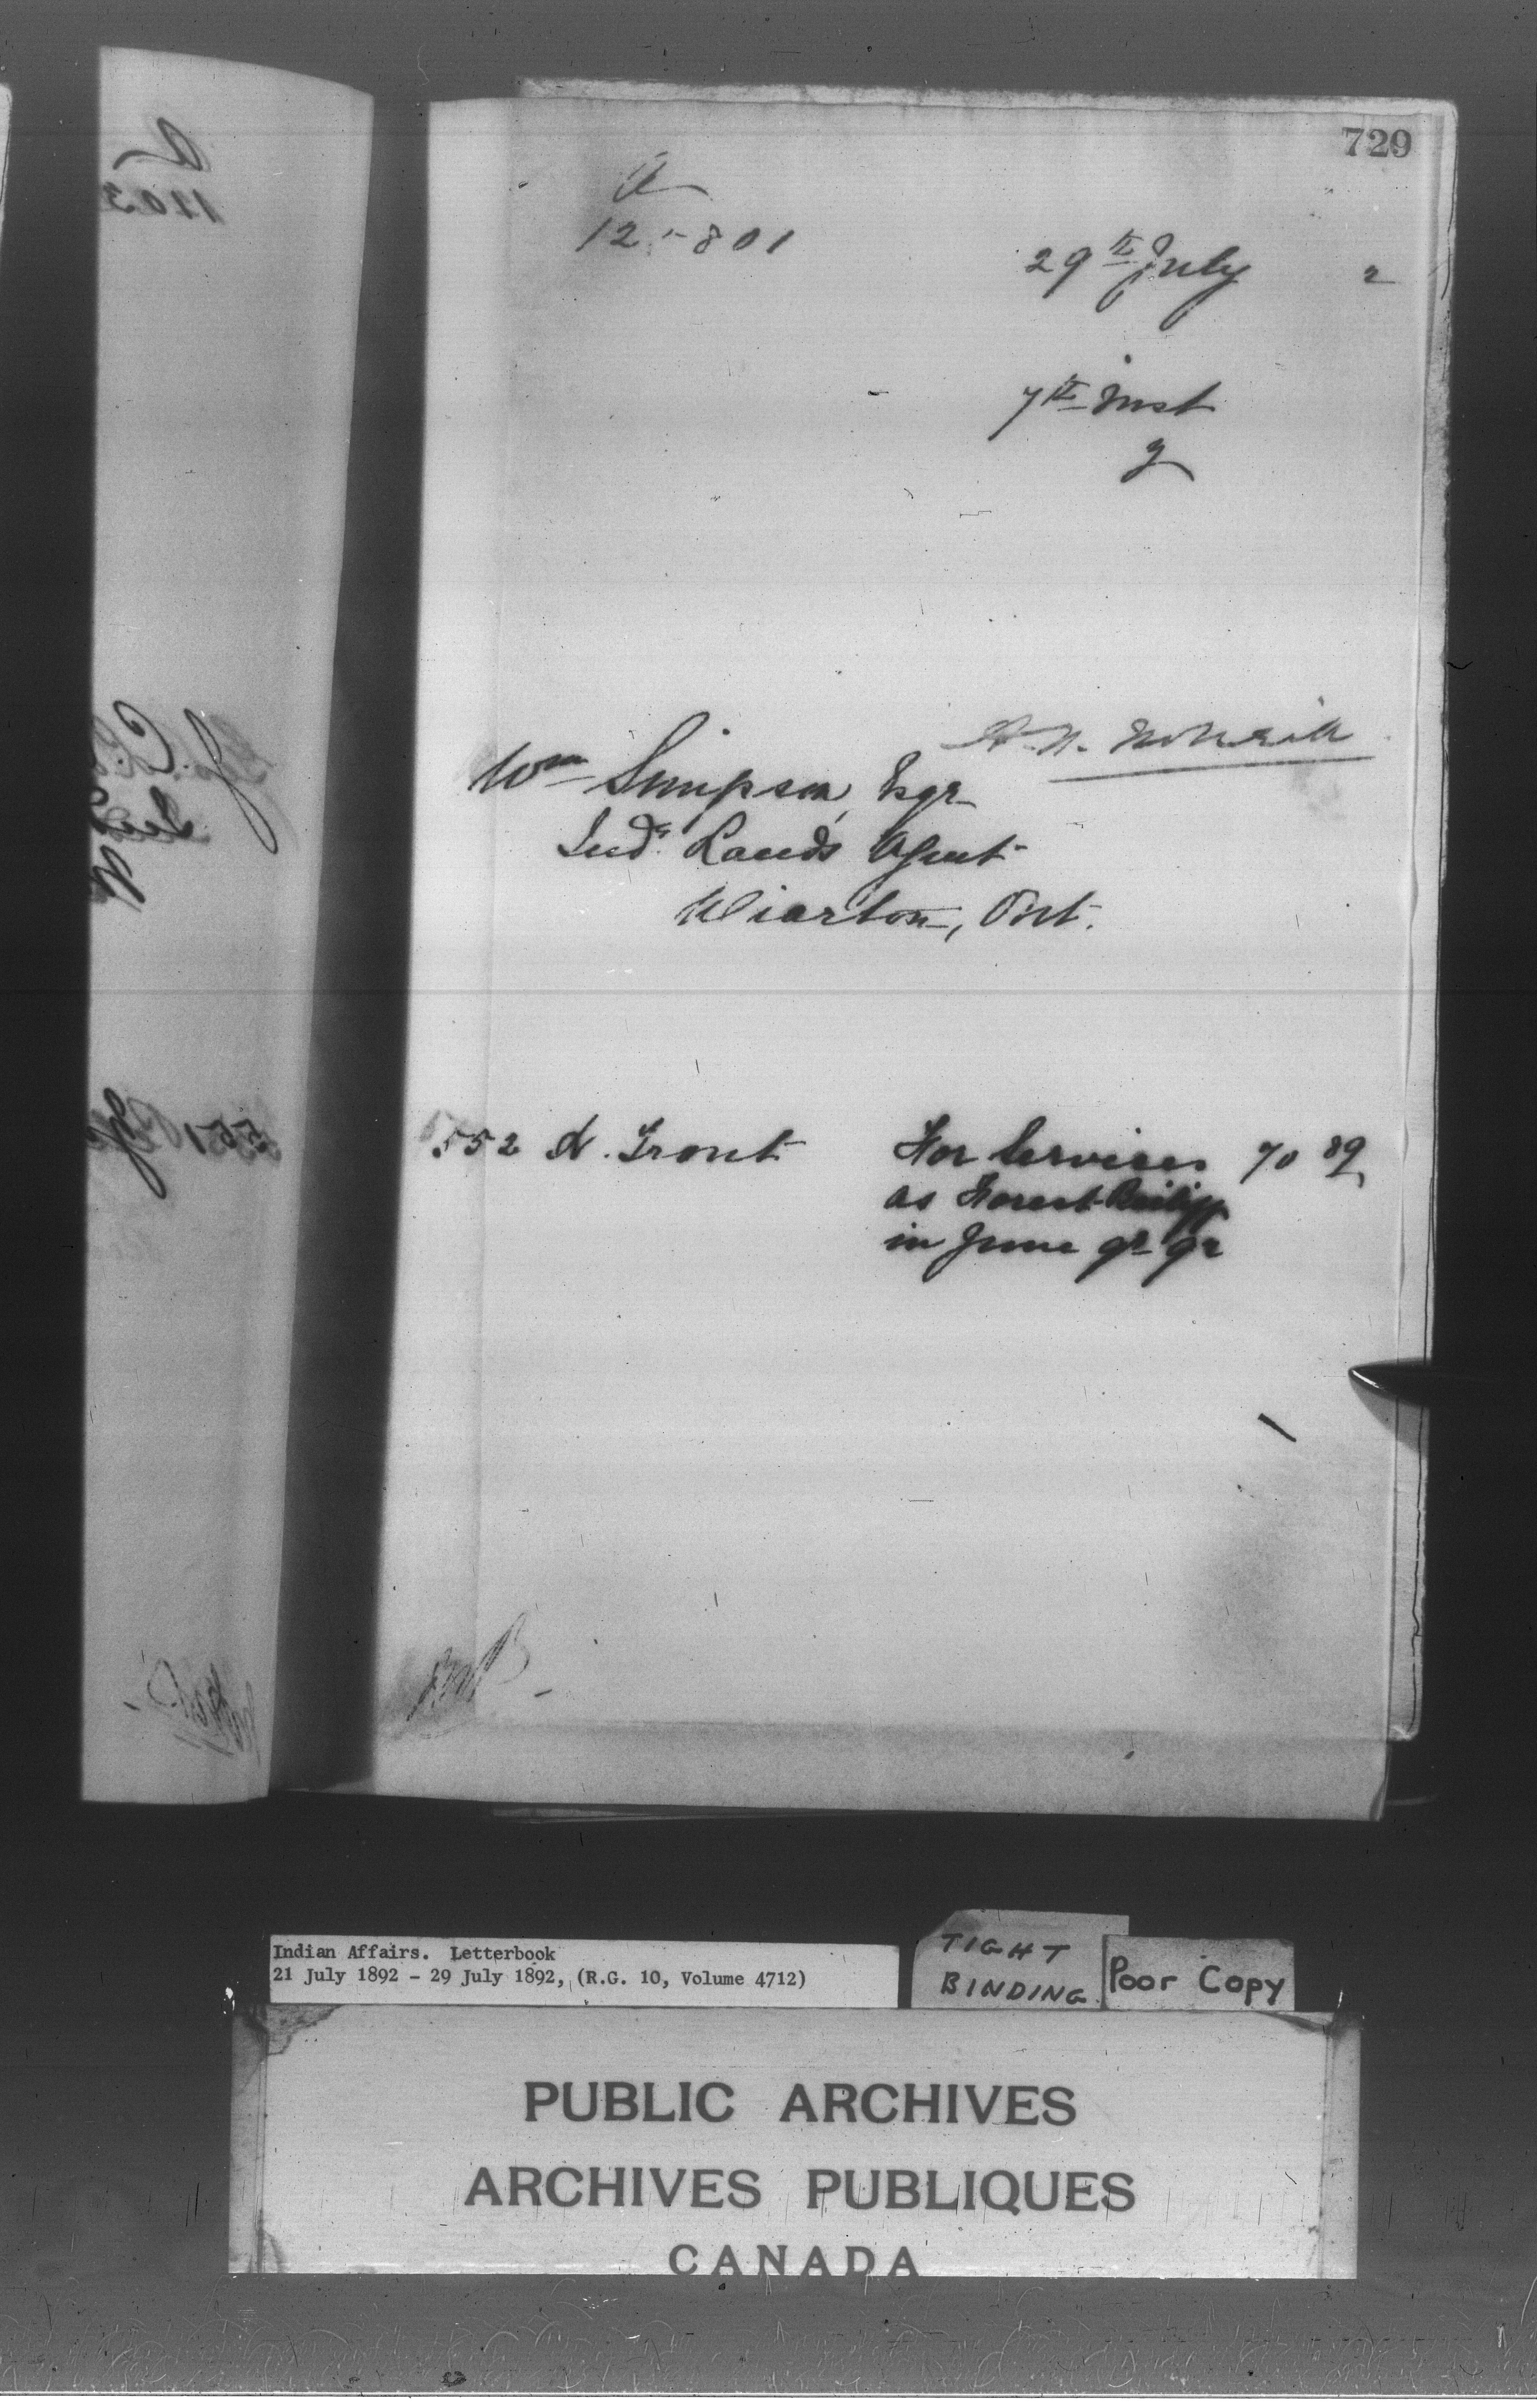 729
A
125801
29th July 2
7th Inst
2
Wm Simpson, Esqr
Ind. Lands Agent
Wiarton, Ont.
552 N. Trout For Services 70 89
as Forest Bailiff
in June qr 92
Indian Affairs. Letterbook
21 July 1892 - 29 July 1892, (R.G. 10, Volume 4712)
TIGHT
BINDING
Poor Copy
PUBLIC ARCHIVES
ARCHIVES PUBLIQUES
CANADA